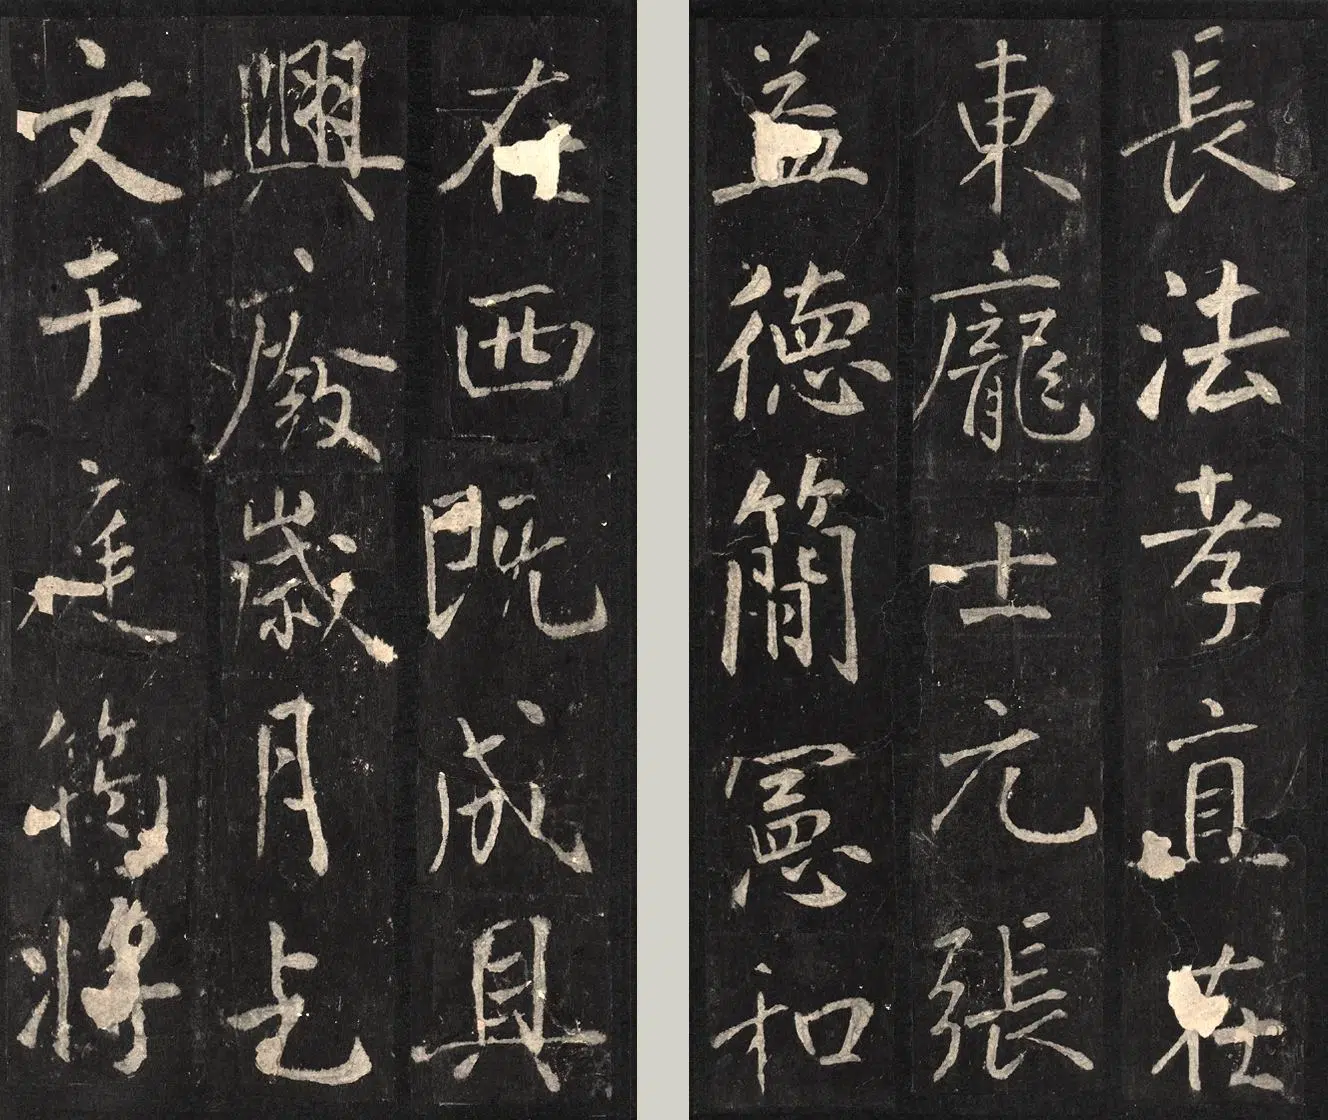 長法孝直在
東龐士元張
益德簡憲和
在西既成具
興廢歲月乞
文于庭筠將